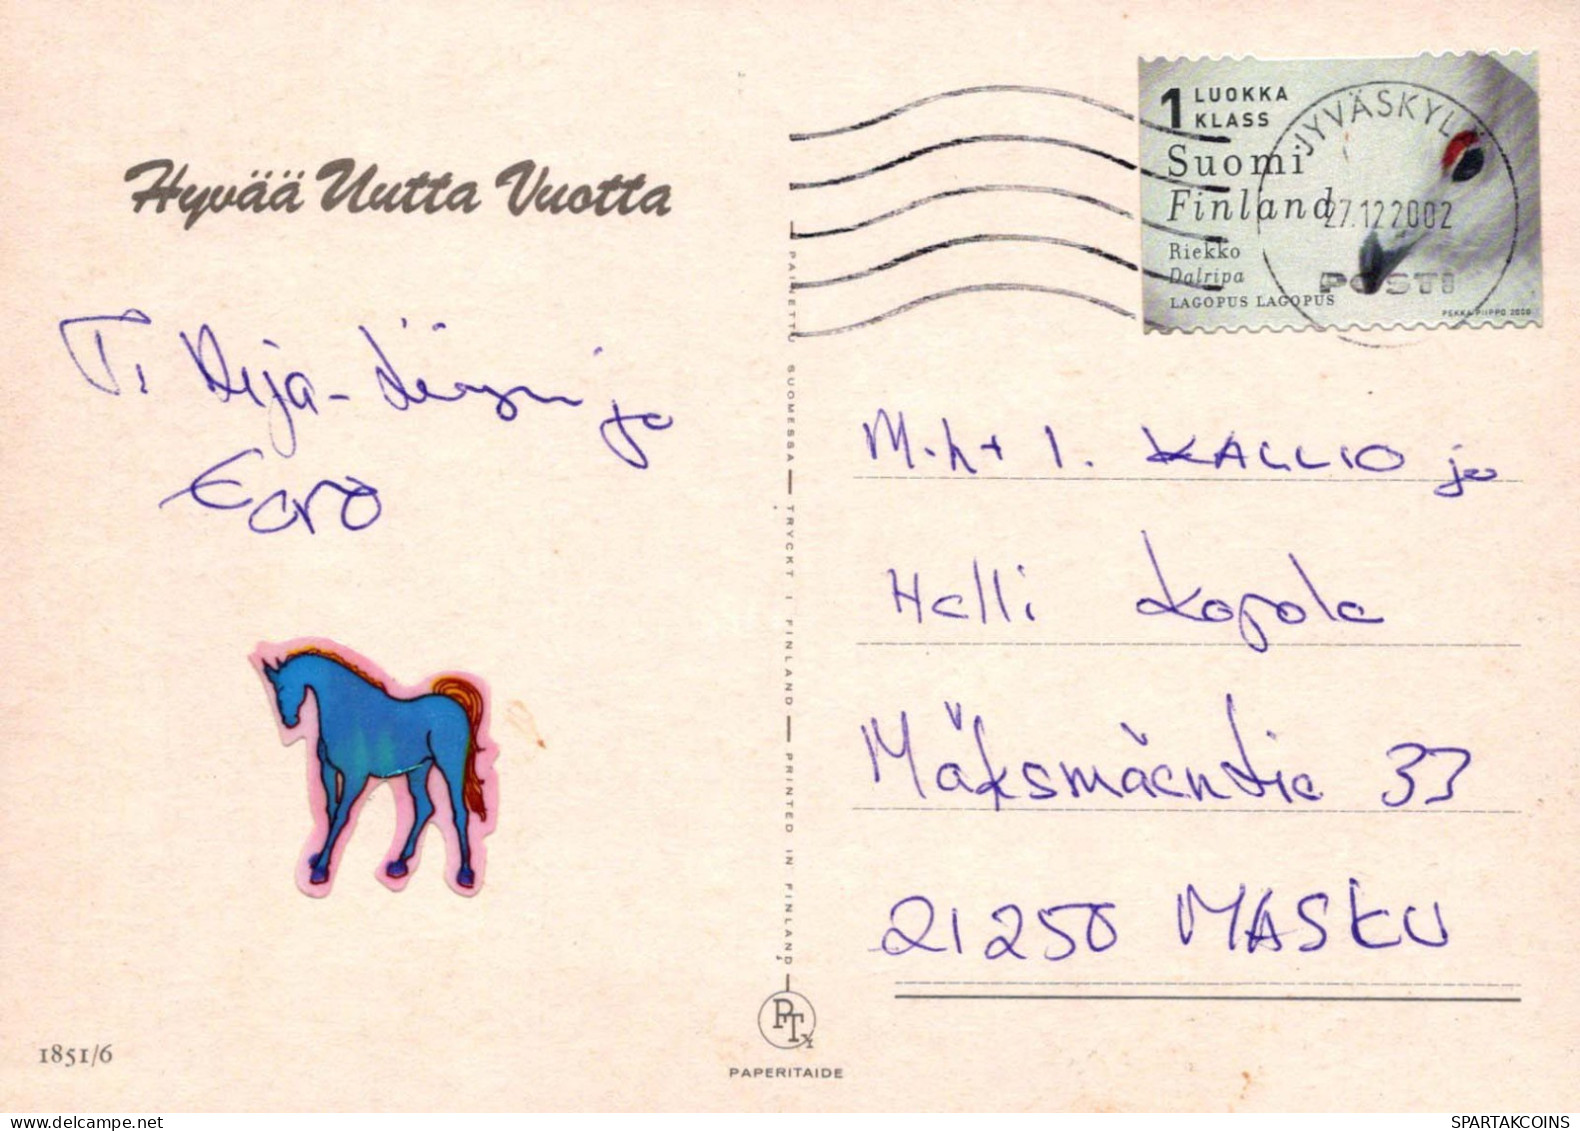 Hyvää Uutta Vuotta
T:
ja
Eero
1851/6
PAINETTU SUOMESSA — TRYCKT I FINLAND — PRINTED IN FINLAND
PTy
PAPERITAIDE
1 LUOKKA
KLASS
Suomi
Finland
Riekko
Dalripa
LAGOPUS LAGOPUS
PEKKA PIIPPO 2000
JYVÄSKYLÄ
27.12.2002
POSTI
KALLIO ja
Helli
Mäksmäentie 33
21250 MASKU
SPARTAKCOINS